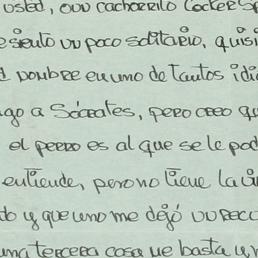 usted, un cachorrito Cocker S
e siento un poco solitario, quisi
l nombre en uno de tantos idi
go a Sócrates, pero creo qu
el perro es al que se le pod
entiende, pero no tiene la li
do y que uno me dejó un rec
una tercera cosa me basta y